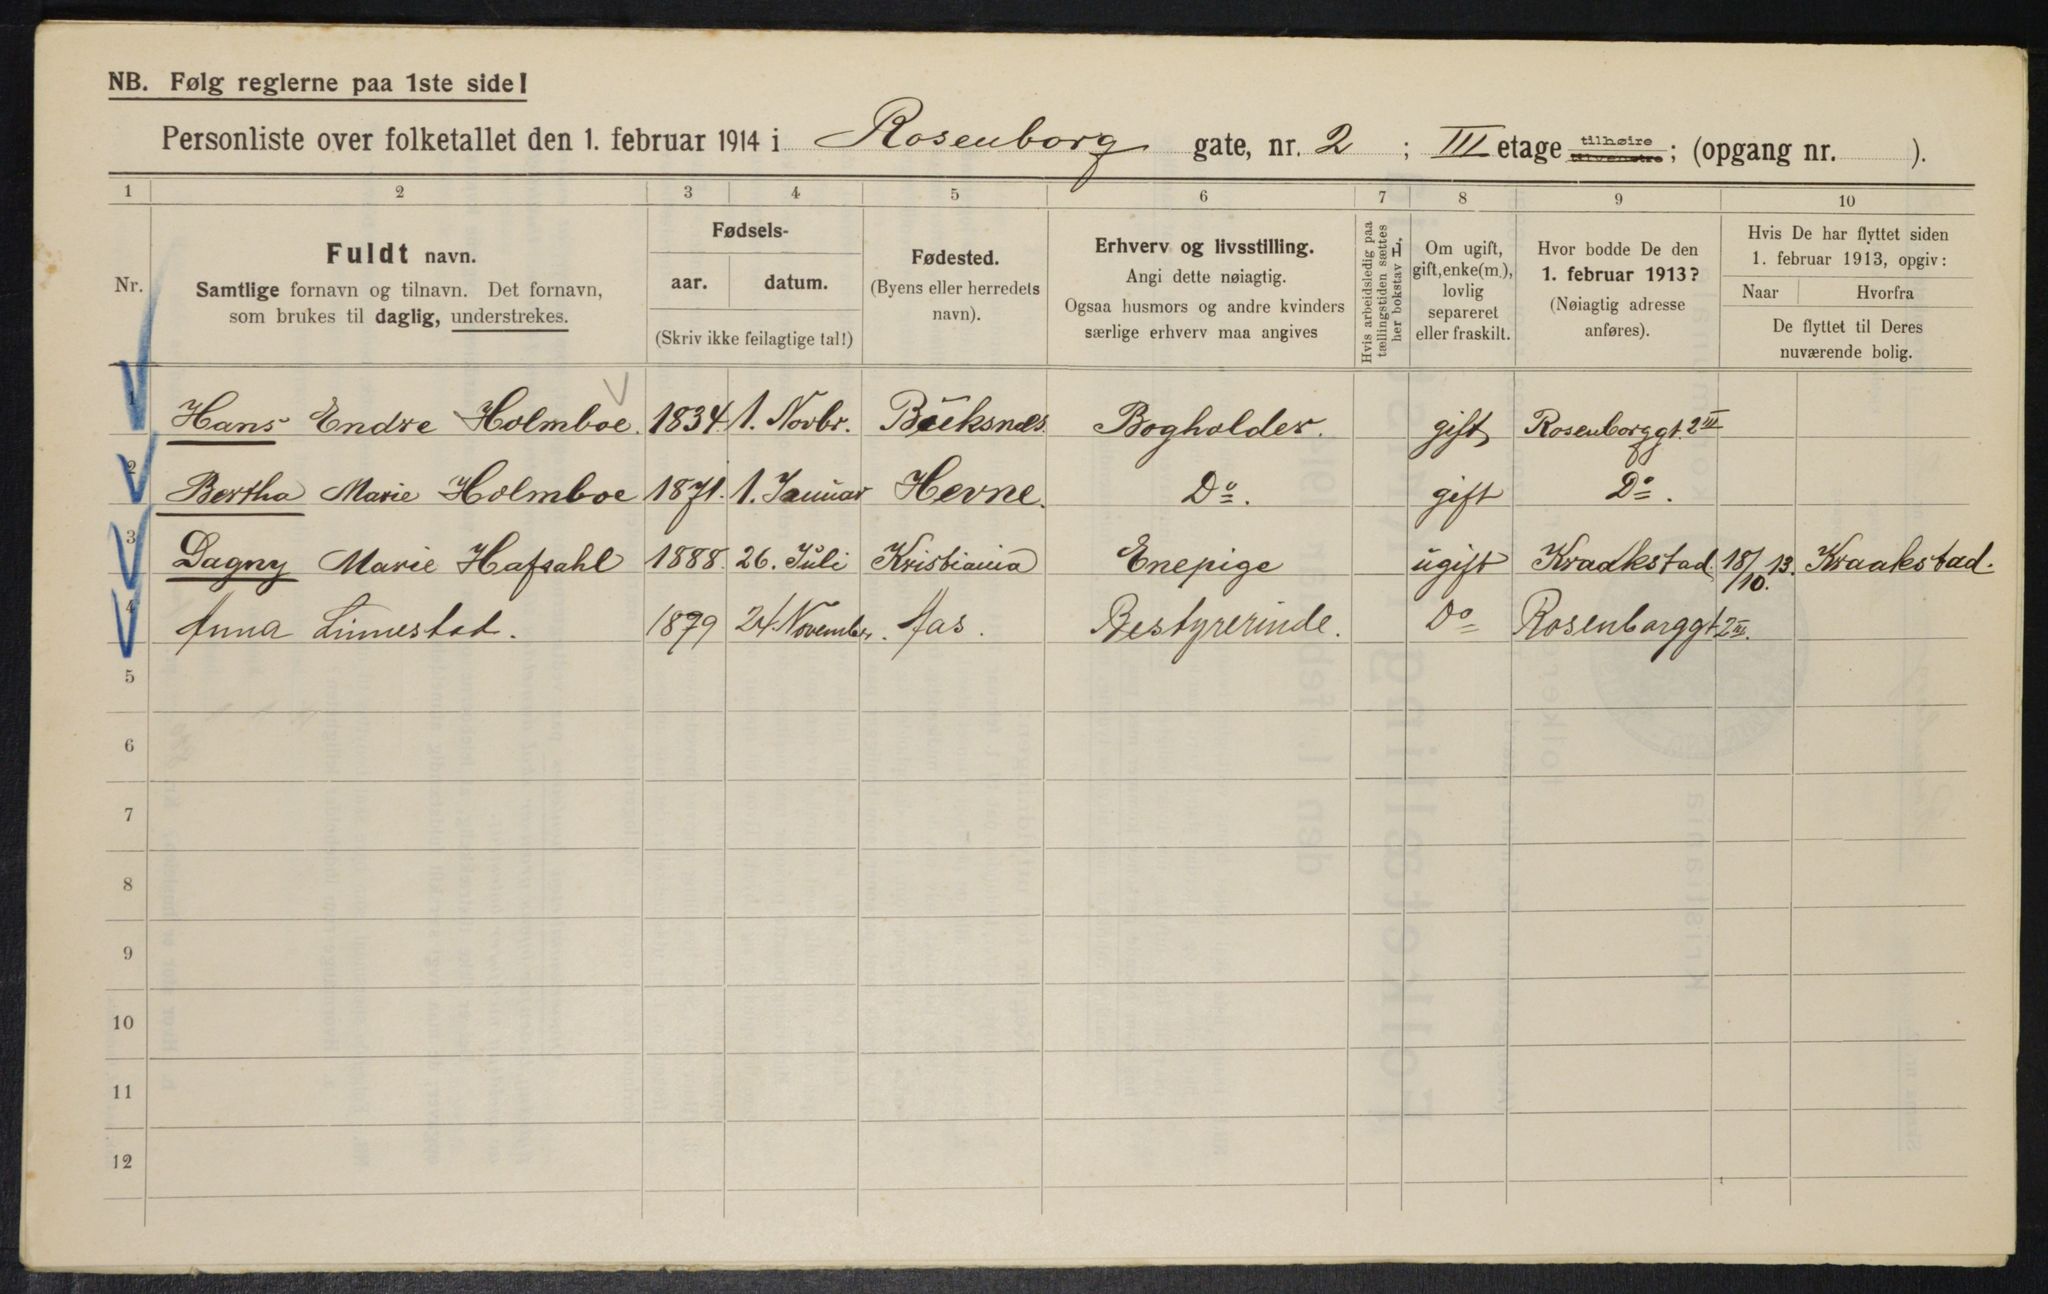 NB. Følg reglerne paa 1ste side!
Personliste over folketallet den 1. februar 1914 i Rosenborg gate, nr. 2 ; III etage tilhøire tilvenstre; (opgang nr. ).
1 2 3 4 5 6 7 8 9 10
Nr.
Fuldt navn.
Samtlige fornavn og tilnavn. Det fornavn,
som brukes til daglig, understrekes.
Fødsels-
aar. datum.
(Skriv ikke feilagtige tal!)
Fødested.
(Byens eller herredets
navn).
Erhverv og livsstilling.
Angi dette nøiagtig.
Ogsaa husmors og andre kvinders
særlige erhverv maa angives
Hvis arbeidsledig paa
tællingstiden sættes
her bokstav L.
Om ugift,
gift, enke(m.),
lovlig
separeret
eller fraskilt.
Hvor bodde De den
1. februar 1913?
(Nøiagtig adresse
anføres).
Hvis De har flyttet siden
1. februar 1913, opgiv:
Naar Hvorfra
De flyttet til Deres
nuværende bolig.
1 Hans Endre Holmboe. 1834. 1. Novbr. Bueksnæs. Bogholder. gift Rosenborggt. 2 III
2 Bertha Marie Holmboe 1871. 1. Januar Hevne. Do. gift Do.
3 Dagny Marie Hafsahl 1888. 26. Juli Kristiania Enepige ugift Kraakstad. 18/10. 13. Kraakstad.
4 Anna Linnestad. 1879 24. Novembr. Aas. Bestyrerinde. Do Rosenborggt 2 III.
5
6
7
8
9
10
11
12